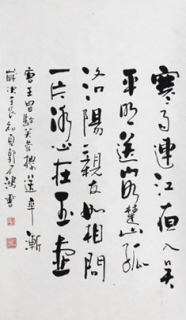 寒雨連江夜入吳
平明送客楚山孤
洛陽親友如相問
一片冰心在玉壺
唐王昌齡芙蓉樓送辛漸